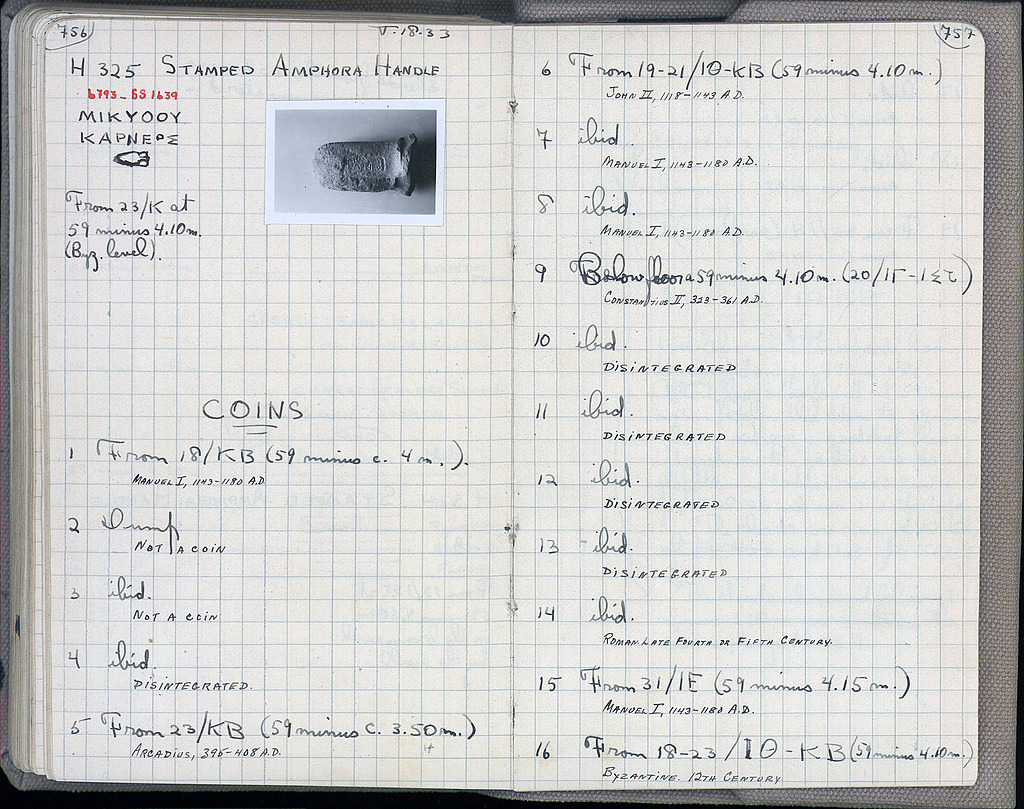 756
V-18-33
H 325 STAMPED AMPHORA HANDLE
6793-SS 1639
ΜΙΚΥΘΟΥ
ΚΑΡΝΕΟΣ
From 23/K at
59 minus 4.10 m.
(Byz. level).
COINS
1 From 18/KB (59 minus c. 4 m.).
MANUEL I, 1143-1180 A.D.
2 Dump
NOT A COIN
3 ibid.
NOT A COIN
4 ibid.
DISINTEGRATED.
5 From 23/KB (59 minus c. 3.50 m.)
ARCADIUS, 395-408 A.D.
757
6 From 19-21/ΙΘ-KB (59 minus 4.10 m.)
JOHN II, 1118-1143 A.D.
7 ibid.
MANUEL I, 1143-1180 A.D.
8 ibid.
MANUEL I, 1143-1180 A.D.
9 Below floor a 59 minus 4.10 m. (20/ΙΓ-ΙΣΤ)
CONSTANTIUS II, 323-361 A.D.
10 ibid.
DISINTEGRATED
11 ibid.
DISINTEGRATED
12 ibid.
DISINTEGRATED
13 ibid.
DISINTEGRATED
14 ibid.
ROMAN. LATE FOURTH OR FIFTH CENTURY.
15 From 31/ΙΕ (59 minus 4.15 m.)
MANUEL I, 1143-1180 A.D.
16 From 18-23/ΙΘ-KB (59 minus 4.10 m.)
BYZANTINE. 12TH CENTURY